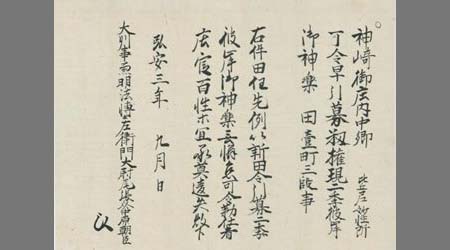 神崎御庄内中郷
可令早引募叙権現二季彼岸
御神楽 田壹町三段事
右件田任先例以新田令引募二季
彼岸御神楽無懈怠可令勤者
庄官百姓等宜承莫違失以下
弘安三年 九月 日
大判事兼明法博士左衛門大尉
朝臣